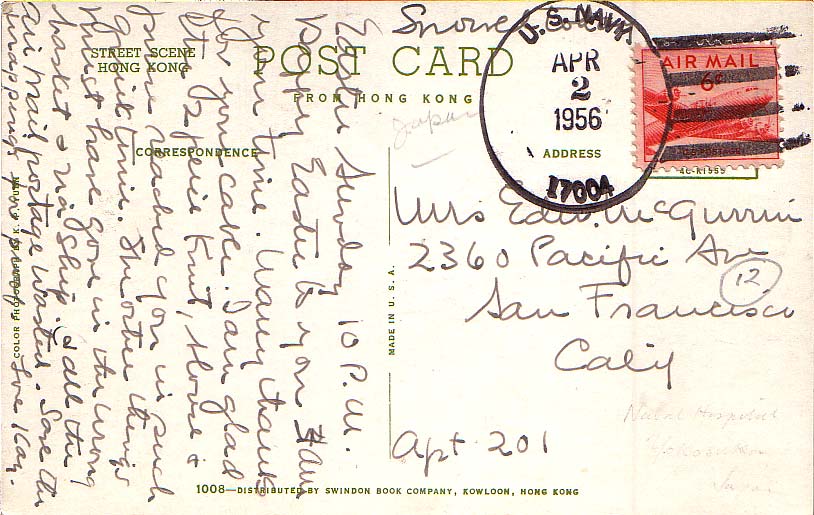 STREET SCENE
HONG KONG
POST CARD
FROM HONG KONG
CORRESPONDENCE
ADDRESS
U.S. NAVY
APR
2
1956
17004
AIR MAIL
6¢
Japan
Mrs Edw. McGurrin
2360 Pacific Ave
San Francisco
Calif
12
Apt 201
Naval Hospital
Yokosuka
Japan
MADE IN U.S.A.
1008—DISTRIBUTED BY SWINDON BOOK COMPANY, KOWLOON, HONG KONG
COLOR PHOTOGRAPH BY K.
Easter Sunday 10 P.M.
Happy Easter to you I am
your time. Many thanks
for your cake. I am glad
the knit, stove &
reached you in such
quick time. The other things
must have gone in the wrong
basket & via ship. & all the
air mail postage wasted. Save the
wrappings
Love Kay.